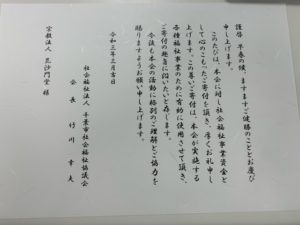 謹啓 早春の候、ますますご健勝のこととお慶び
申し上げます。
このたびは、本会に対し社会福祉事業資金と
して心のこもったご寄付を頂き、厚くお礼申し
上げます。この尊いご寄付は、本会が実施する
各種福祉事業のために有効に使用させて頂き、
ご寄付の趣旨に沿いたいと存じます。
今後も本会の活動に格別のご理解とご協力を
賜りますようお願い申し上げます。
令和三年三月吉日
社会福祉法人 千葉市社会福祉協議会
会長 竹川 幸夫
宗教法人 毘沙門堂 様